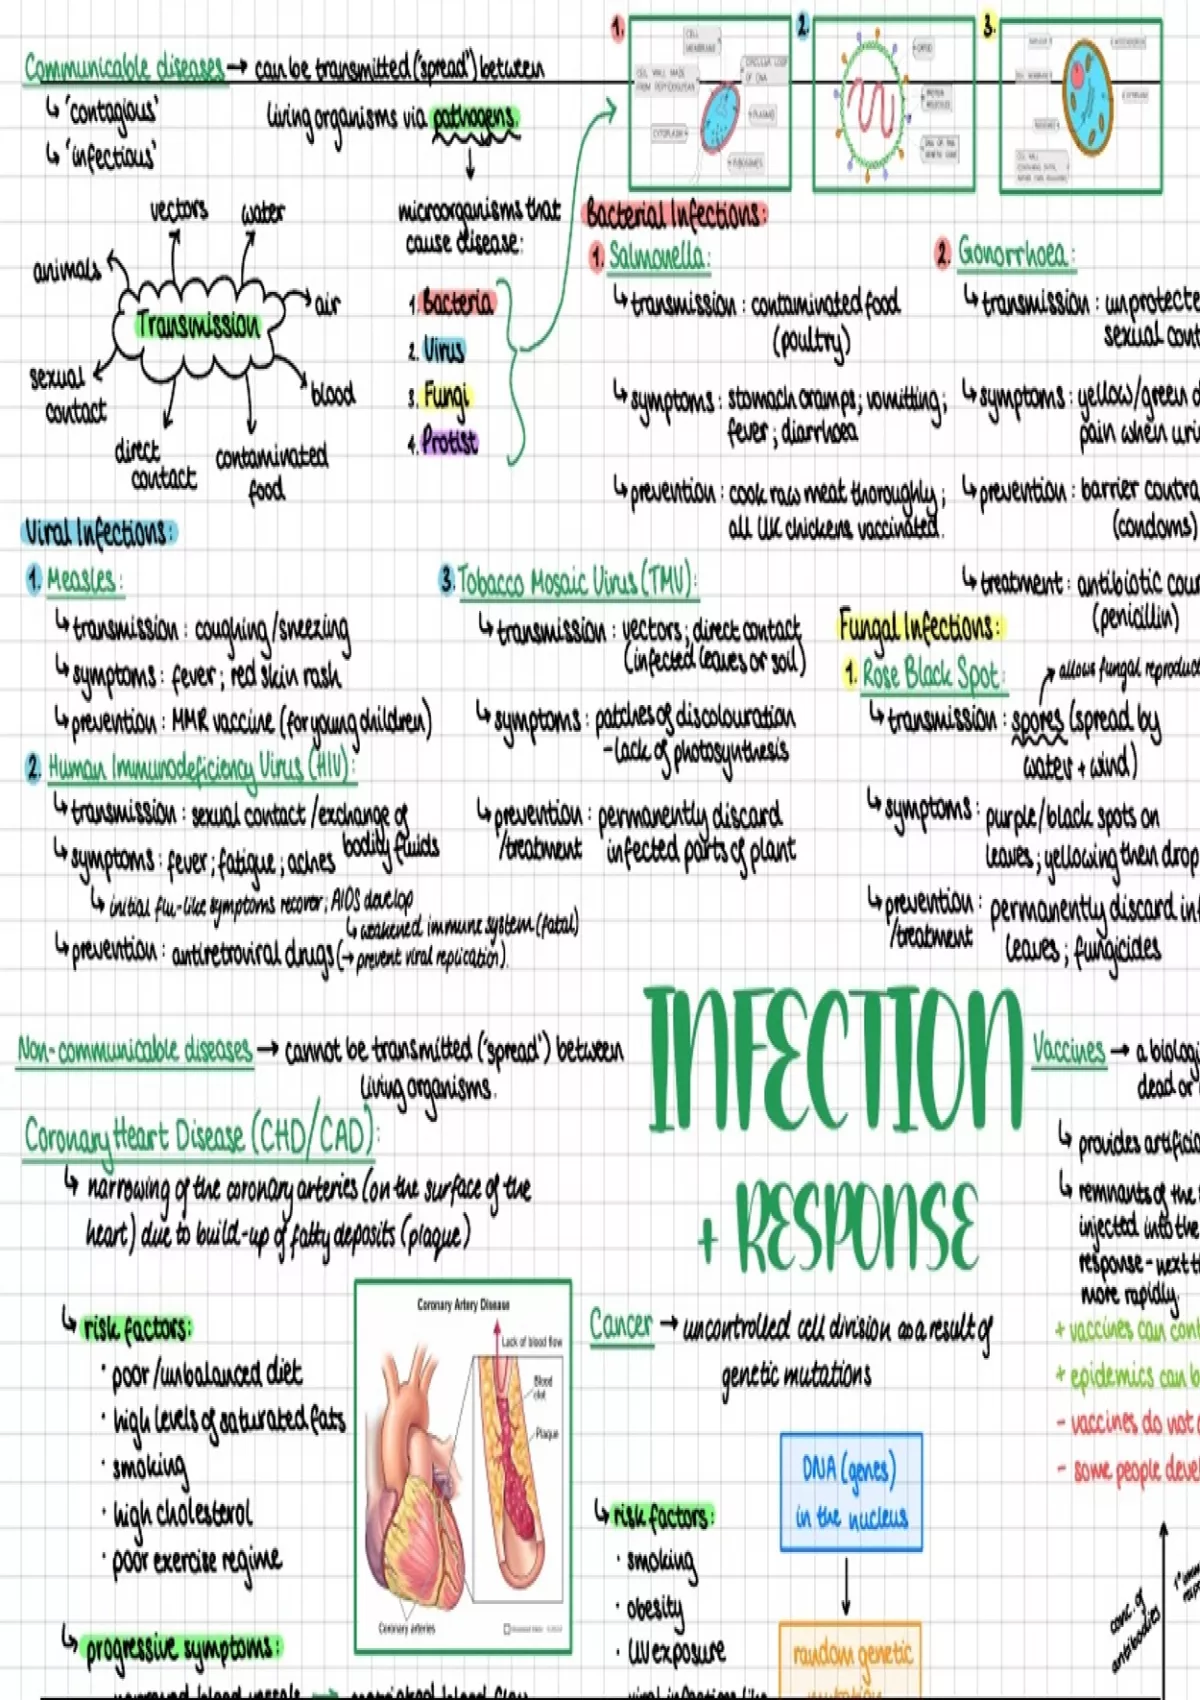 Communicable diseases → can be transmitted ('spread') between
living organisms via pathogens.
↳ 'contagious'
↳ 'infectious'
microorganisms that
cause disease:
1. Bacteria
2. Virus
3. Fungi
4. Protist
Transmission
vectors
water
animals
air
sexual
contact
blood
direct
contact
contaminated
food
1.
CELL
MEMBRANE
CELL WALL MADE
FROM PEPTIDOGLYCAN
CIRCULAR LOOP
OF DNA
PLASMID
CYTOPLASM
RIBOSOMES
2.
3.
Bacterial Infections:
1. Salmonella:
↳ transmission: contaminated food
(poultry)
↳ symptoms: stomach cramps; vomitting;
fever; diarrhoea
↳ prevention: cook raw meat thoroughly;
all UK chickens vaccinated.
2. Gonorrhoea:
↳ transmission: unprotecte
sexual cont
↳ symptoms: yellow/green d
pain when uri
↳ prevention: barrier contra
(condoms)
↳ treatment: antibiotic cour
(penicillin)
Viral Infections:
1. Measles:
↳ transmission: coughing/sneezing
↳ symptoms: fever; red skin rash
↳ prevention: MMR vaccine (for young children)
2. Human Immunodeficiency Virus (HIV):
↳ transmission: sexual contact/exchange of
bodily fluids
↳ symptoms: fever; fatigue; aches
↳ initial flu-like symptoms recover; AIDS develop
↳ weakened immune system (fatal)
↳ prevention: antiretroviral drugs (→ prevent viral replication).
3. Tobacco Mosaic Virus (TMV):
↳ transmission: vectors; direct contact
(infected leaves or soil)
↳ symptoms: patches of discolouration
- lack of photosynthesis
↳ prevention: permanently discard
/treatment infected parts of plant
Fungal Infections:
1. Rose Black Spot:
allows fungal reproduct
↳ transmission: spores (spread by
water + wind)
↳ symptoms: purple/black spots on
leaves; yellowing then drop
↳ prevention: permanently discard inf
/treatment leaves; fungicides
INFECTION
+ RESPONSE
Non-communicable diseases → cannot be transmitted ('spread') between
living organisms.
Coronary Heart Disease (CHD/CAD):
↳ narrowing of the coronary arteries (on the surface of the
heart) due to build-up of fatty deposits (plaque)
↳ risk factors:
· poor/unbalanced diet
· high levels of saturated fats
· smoking
· high cholesterol
· poor exercise regime
↳ progressive symptoms:
Coronary Artery Disease
Lack of blood flow
Blood
clot
Plaque
Coronary arteries
Cancer → uncontrolled cell division as a result of
genetic mutations
↳ risk factors:
· smoking
· obesity
· UV exposure
DNA (genes)
in the nucleus
random genetic
mutation
Vaccines → a biologi
dead or
↳ provides artificia
↳ remnants of the
injected into the
response - next t
more rapidly.
+ vaccines can cont
+ epidemics can b
- vaccines do not
- some people devel
conc. of
antibodies